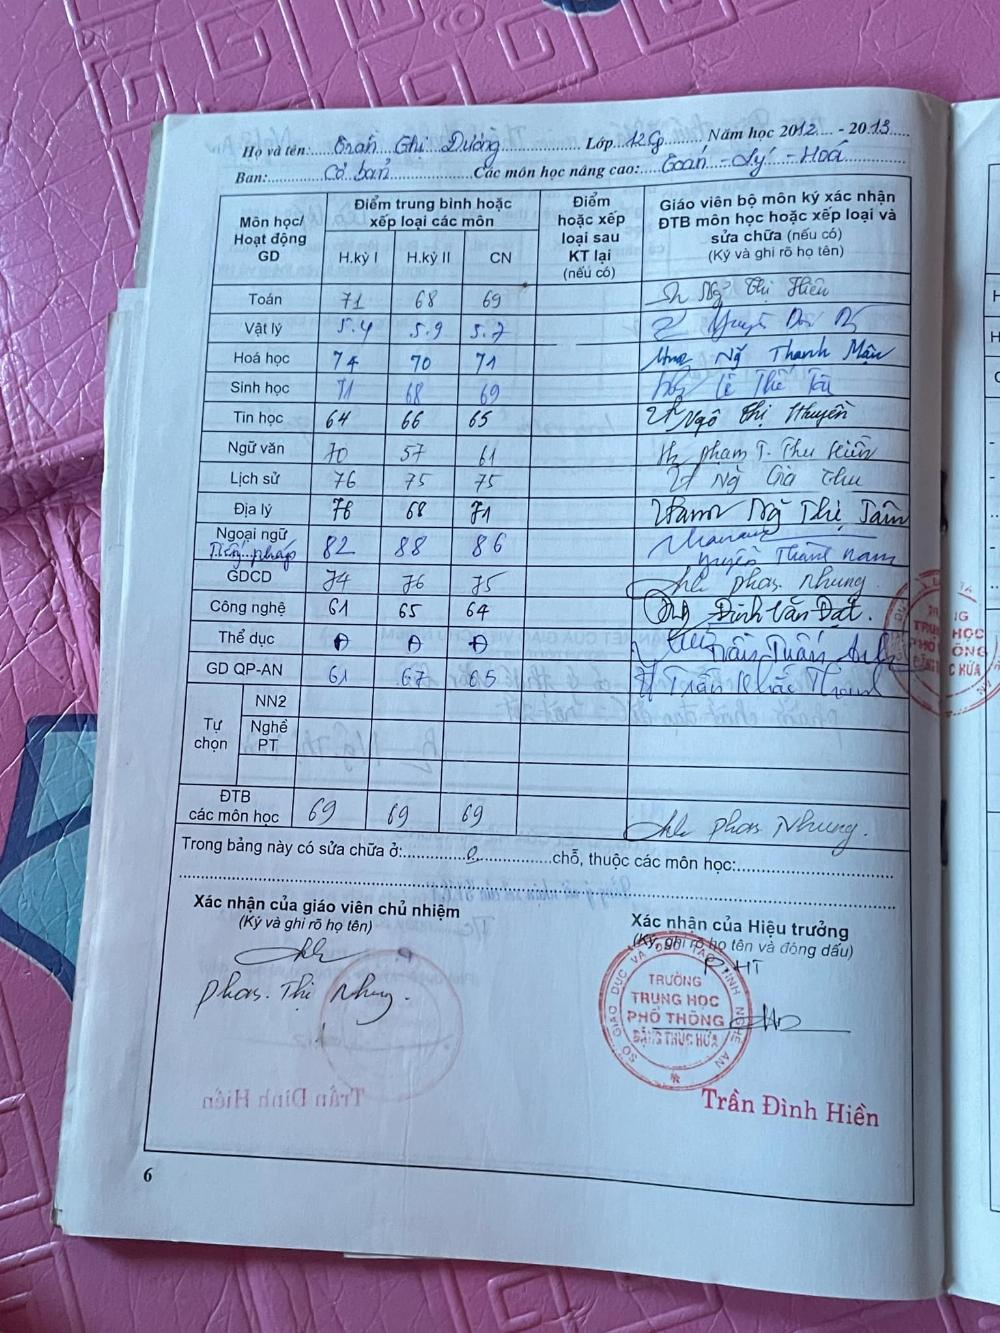 Họ và tên: Trần Thị Dương Lớp 12G Năm học 2012 - 2013
Ban: Cơ bản Các môn học nâng cao: Toán - Lý - Hoá
Môn học/ Hoạt động GD
Điểm trung bình hoặc xếp loại các môn
H.kỳ I H.kỳ II CN
Điểm hoặc xếp loại sau KT lại (nếu có)
Giáo viên bộ môn ký xác nhận ĐTB môn học hoặc xếp loại và sửa chữa (nếu có) (Ký và ghi rõ họ tên)
Toán 71 68 69 Ng Thị Hiên
Vật lý 5.4 5.9 5.7
Hoá học 74 70 71 Ng Thanh Mậu
Sinh học 71 68 69 Lê Thế
Tin học 64 66 65 Ngô Thị Huyền
Ngữ văn 70 57 61 Phạm T. Thu Hiền
Lịch sử 76 75 75 Ng
Địa lý 76 68 71 Ng Thị Tâm
Ngoại ngữ
Tiếng pháp 82 88 86 Nguyễn Thành Nam
GDCD 74 76 75 Phan. Nhung
Công nghệ 61 65 64 Đinh Văn Đạt.
Thể dục Đ Đ Đ Trần Tuấn Anh
GD QP-AN 61 67 65 Trần Khắc Thành
Tự chọn
NN2
Nghề PT
ĐTB các môn học 69 69 69 Phan. Nhung.
Trong bảng này có sửa chữa ở: 0 chỗ, thuộc các môn học:
Xác nhận của giáo viên chủ nhiệm
(Ký và ghi rõ họ tên)
Phan. Thị Nhung.
Xác nhận của Hiệu trưởng
(Ký, ghi rõ họ tên và đóng dấu)
P. HT
SỞ GIÁO DỤC VÀ ĐÀO TẠO TỈNH NGHỆ AN
TRƯỜNG
TRUNG HỌC
PHỔ THÔNG
ĐẶNG THÚC HỨA
Trần Đình Hiền
6